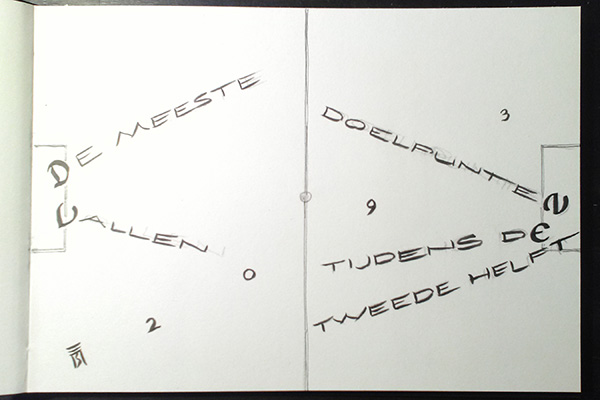 DE MEESTE
DOELPUNTEN
VALLEN
TIJDENS DE
TWEEDE HELFT
2
0
9
3